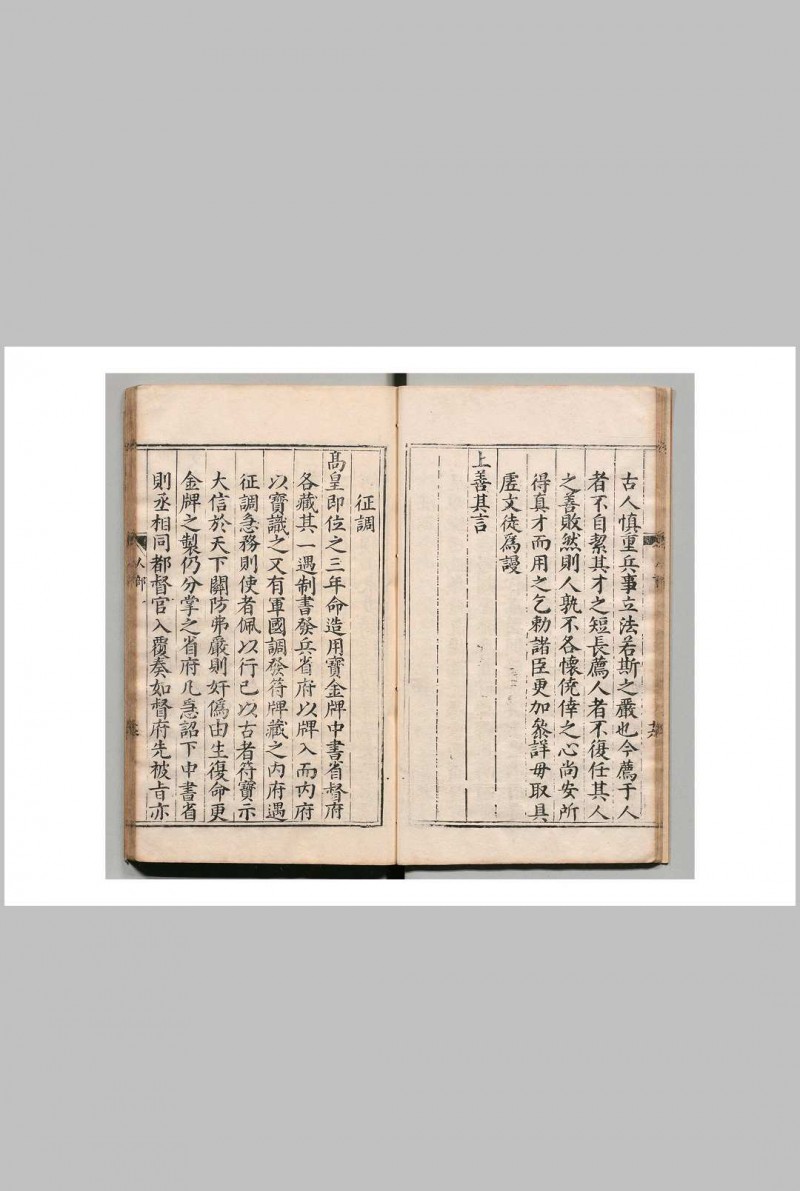 古人慎重兵事立法若斯之嚴也今薦于人
者不自絜其才之短長薦人者不復任其人
之善敗然則人孰不各懷僥倖之心尚安所
得真才而用之乞勅諸臣更加叅詳毋取具
虛文徒爲謾
上善其言
征調
髙皇即位之三年命造用寶金牌中書省督府
各藏其一遇制書發兵省府以牌入而內府
以寶識之又有軍國調發符牌藏之內府遇
征調急務則使者佩以行已以古者符寶示
大信於天下關防弗嚴則奸僞由生復命更
金牌之製仍分掌之省府凡急詔下中書省
則丞相同都督官入覆奏如督府先被㫖亦